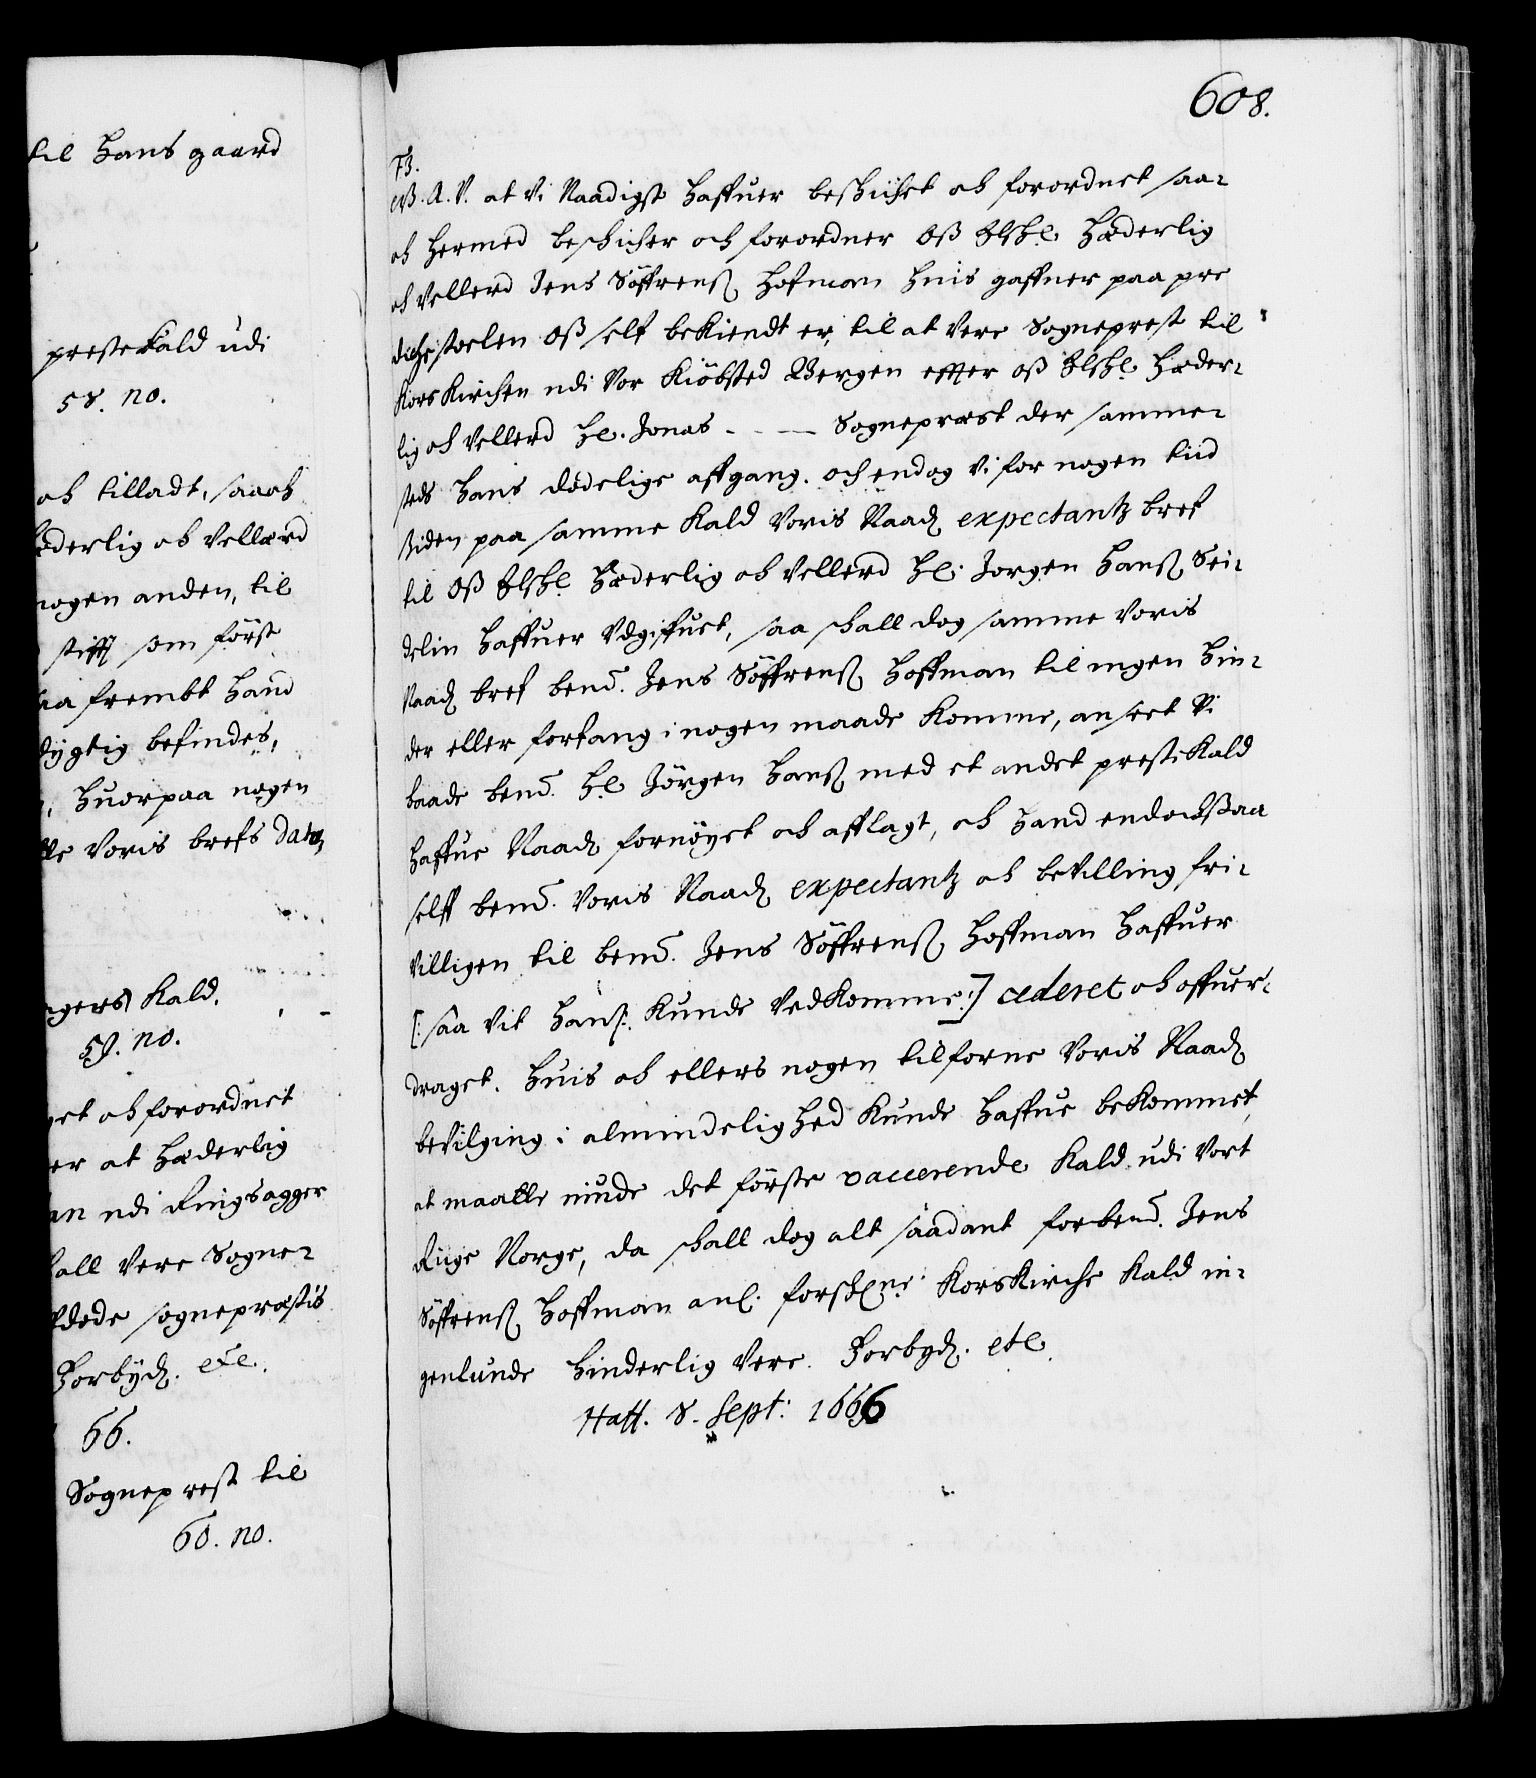 til Hans gaard
prestekald udi
58. no.
och tilladt, saa och
ederlig och Vellærd
nogen anden, til
stifft som först
aa frembt Hand
dygtig befindes,
, Huorpaa nogen
tte Voris brefs dato,
ngers Kald.
59. no.
get och forordnet
er at Hæderlig
an udi Ringsagger
all Vere Sogne-
fdöde sogneprestis
Forbyd. etc.
66.
Sogneprest til
60. no.
608.
F3.
G. A. V. at Vi Naadigst Haffuer beskicket och forordnet saa-
och Hermed beschicker och forordner Oß Elskl. Hæderlig
och Vellerd Jens Söffrenß. Hofman Huis gaffuer paa pre
dichestoelen Oß self bekiendt er, til at Vere Sogneprest til
Korskirchen udi Vor Kiöbsted Bergen effter oß Elskl. Hæder-
lig och Vellerd Hr. Jonas - - — Sogneprest der samme-
steds Hans dödelige affgang. och endog Vi for nogen tiid
siden paa samme Kald Voris Naad. expectantz bref
til Oß Elskl. Hæderlig och Vellerd Hr. Jorgen Hanß. Sei-
delin Haffuer Udgiffuet, saa schall dog samme Voris
Naad. bref bemd. Jens Söffrenß. Hoffman til ingen Hin-
der eller forfang i nogen maade Komme, anseet Vi
baade bemd. Hr. Jörgen Hanß. med et andet prestekald
Haffue Naad. fornöyet och afflagt, och Hand endochsaa
selff bemd. Voris Naad. expectantz och bevilling fri-
villigen til bemd. Jens Söffrenß. Hoffman Haffuer
[: saa Vit Hanß. Kunde Vedkomme :] cederet och offuer-
draget. Huis och ellers nogen tilforne Voris Naad.
bevilging i almindelighed Kunde Haffue bekommet,
at maatte niude det förste vaccerende Kald udi Vort
Riige Norge, da schall dog alt saadant for bemd. Jens
Söffrenß. Hoffman anl. forschne. Korskirche Kald in-
genlunde Hinderlig Vere. Forbyd. etc
Haff. 8. Sept: 1666